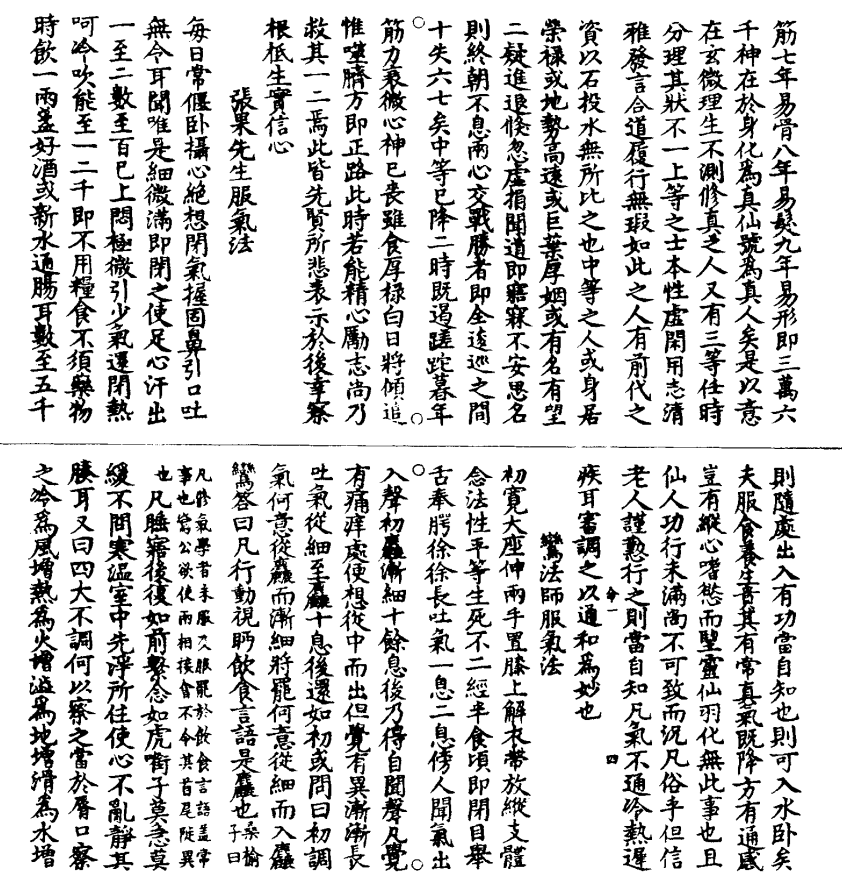 筋七年易骨八年易髮九年易形即三萬六
千神在於身化為真仙號為真人矣是以意
在玄微理生不測修真之人又有三等任時
分理其狀不一上等之士本性虛閑用志清
雅發言合道履行無瑕如此之人有前代之
資以石投水無所比之也中等之人或身居
榮祿或地勢高遠或巨葉厚姻或有名有望
二疑進退倏忽虛捐聞道即寤寐不安思名
則終朝不息兩心交戰勝者即全逡巡之間
十失六七矣中等已降二時既過蹉跎暮年
筋力衰微心神已喪雖食厚祿白日將傾追
惟噬臍方即正路此時若能精心勵志尚乃
救其一二焉此皆先賢所悲表示於後幸察
根柢生實信心
張果先生服氣法
每日常偃卧攝心絕想閉氣握固鼻引口吐
無令耳聞唯是細微滿即閉之使足心汗出
一至二數至百已上悶極微引少氣還閉熱
呵冷吹能至一二千即不用糧食不須藥物
時飲一兩盞好酒或新水通腸耳數至五千
則隨處出入有功當自知也則可入水卧矣
夫服食養生貴其有常真氣既降方有通感
豈有縱心嗜慾而望靈仙羽化無此事也且
仙人功行未滿尚不可致而況凡俗乎但信
老人謹懃行之則當自知凡氣不通冷熱遲
疾耳審調之以通和為妙也
命一
四
鸞法師服氣法
初寬大座伸兩手置膝上解衣帶放縱支體
念法性平等生死不二經半食頃即閉目舉
舌奉腭徐徐長吐氣一息二息傍人聞氣出
入聲初麤漸細十餘息後乃得自聞聲凡覺
有痛痒處便想從中而出但覺有異漸漸長
吐氣從細至麤十息後還如初或問曰初調
氣何意從麤而漸細將罷何意從細而入麤
鸞答曰凡行動視眄飲食言語是麤也桑榆
子曰
凡修氣學者未服及服罷於飲食言語蓋常
事也鸞公欲使兩相接會不令其首尾陡異
也凡睡寤後復如前繫念如虎銜子莫急莫
緩不問寒溫室中先淨所住使心不亂靜其
膝耳又曰四大不調何以察之當於脣口察
之冷為風增熱為火增澁為地增滑為水增